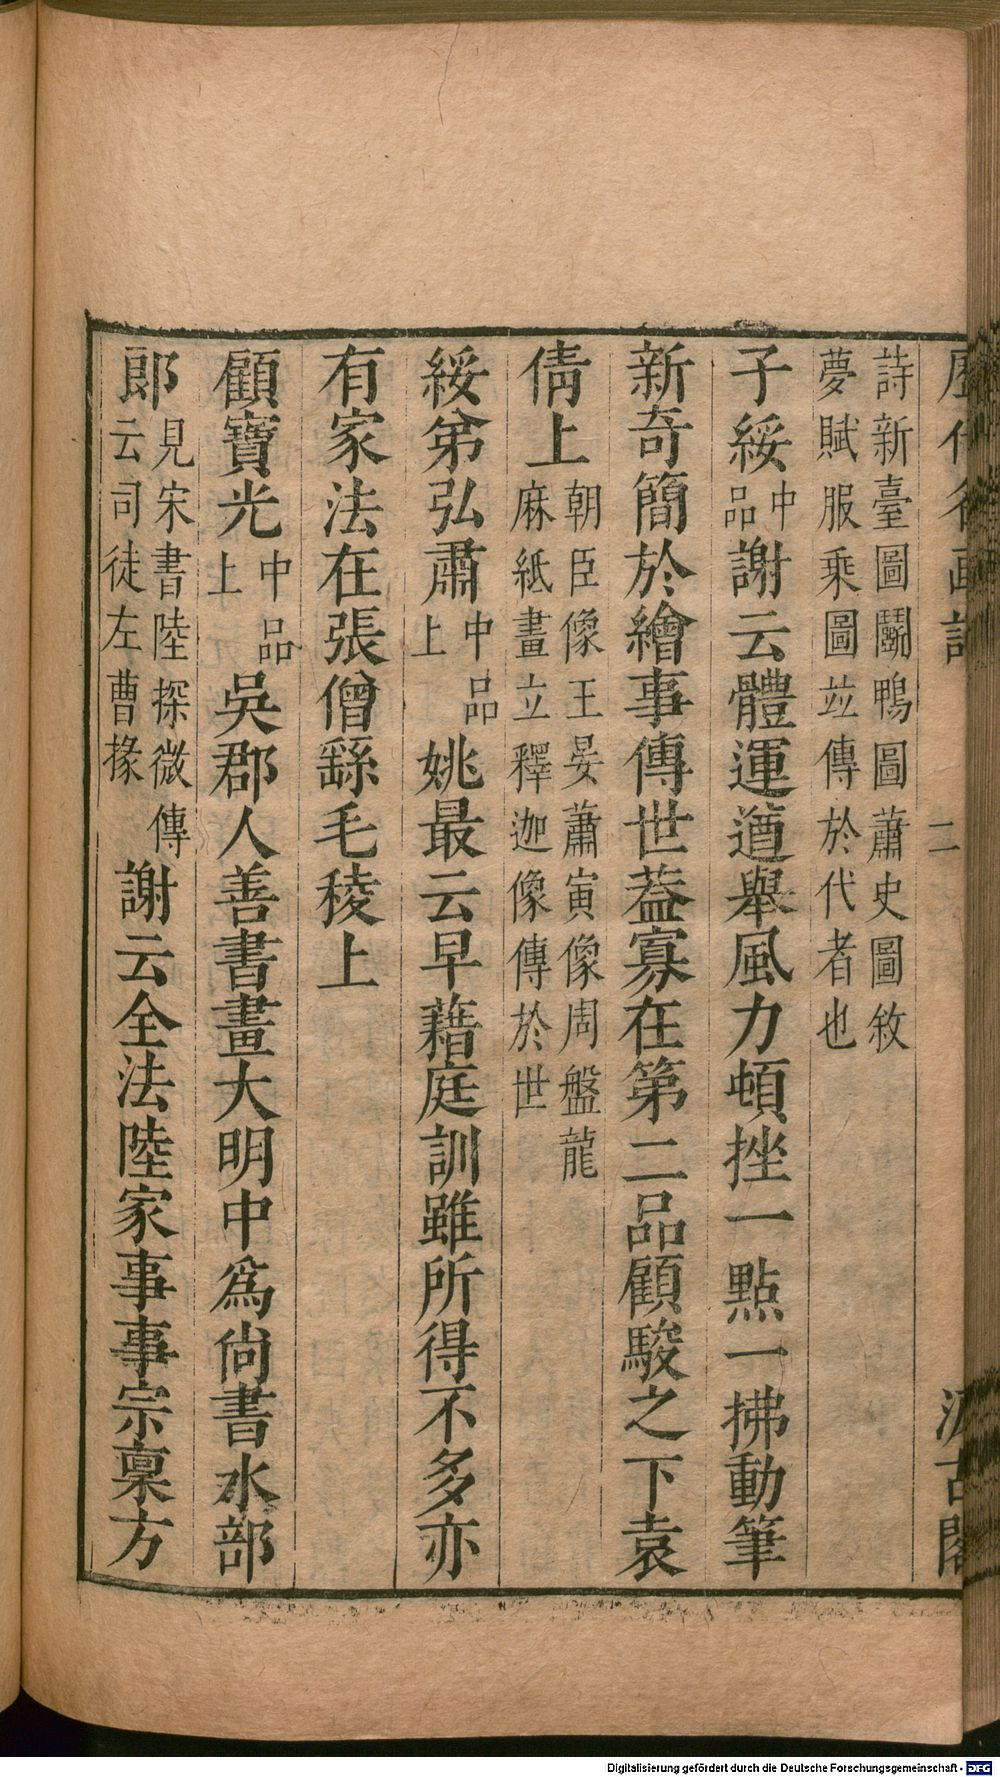 歷代名画記
二
汲古閣
詩新臺圖鬭鴨圖蕭史圖敘
夢賦服乘圖竝傳於代者也
子綏
中
品
謝云體運遒舉風力頓挫一點一拂動筆
新奇簡於繪事傳世葢寡在第二品顧駿之下袁
倩上
朝臣像王晏蕭寅像周盤龍
麻紙畫立釋迦像傳於世
綏弟弘肅
中品
上
姚最云早藉庭訓雖所得不多亦
有家法在張僧繇毛稜上
顧寶光
中品
上
吳郡人善書畫大明中爲尙書水部
郎
見宋書陸探微傳
云司徒左曹掾
謝云全法陸家事事宗稟方
Digitalisierung gefördert durch die Deutsche Forschungsgemeinschaft - DFG